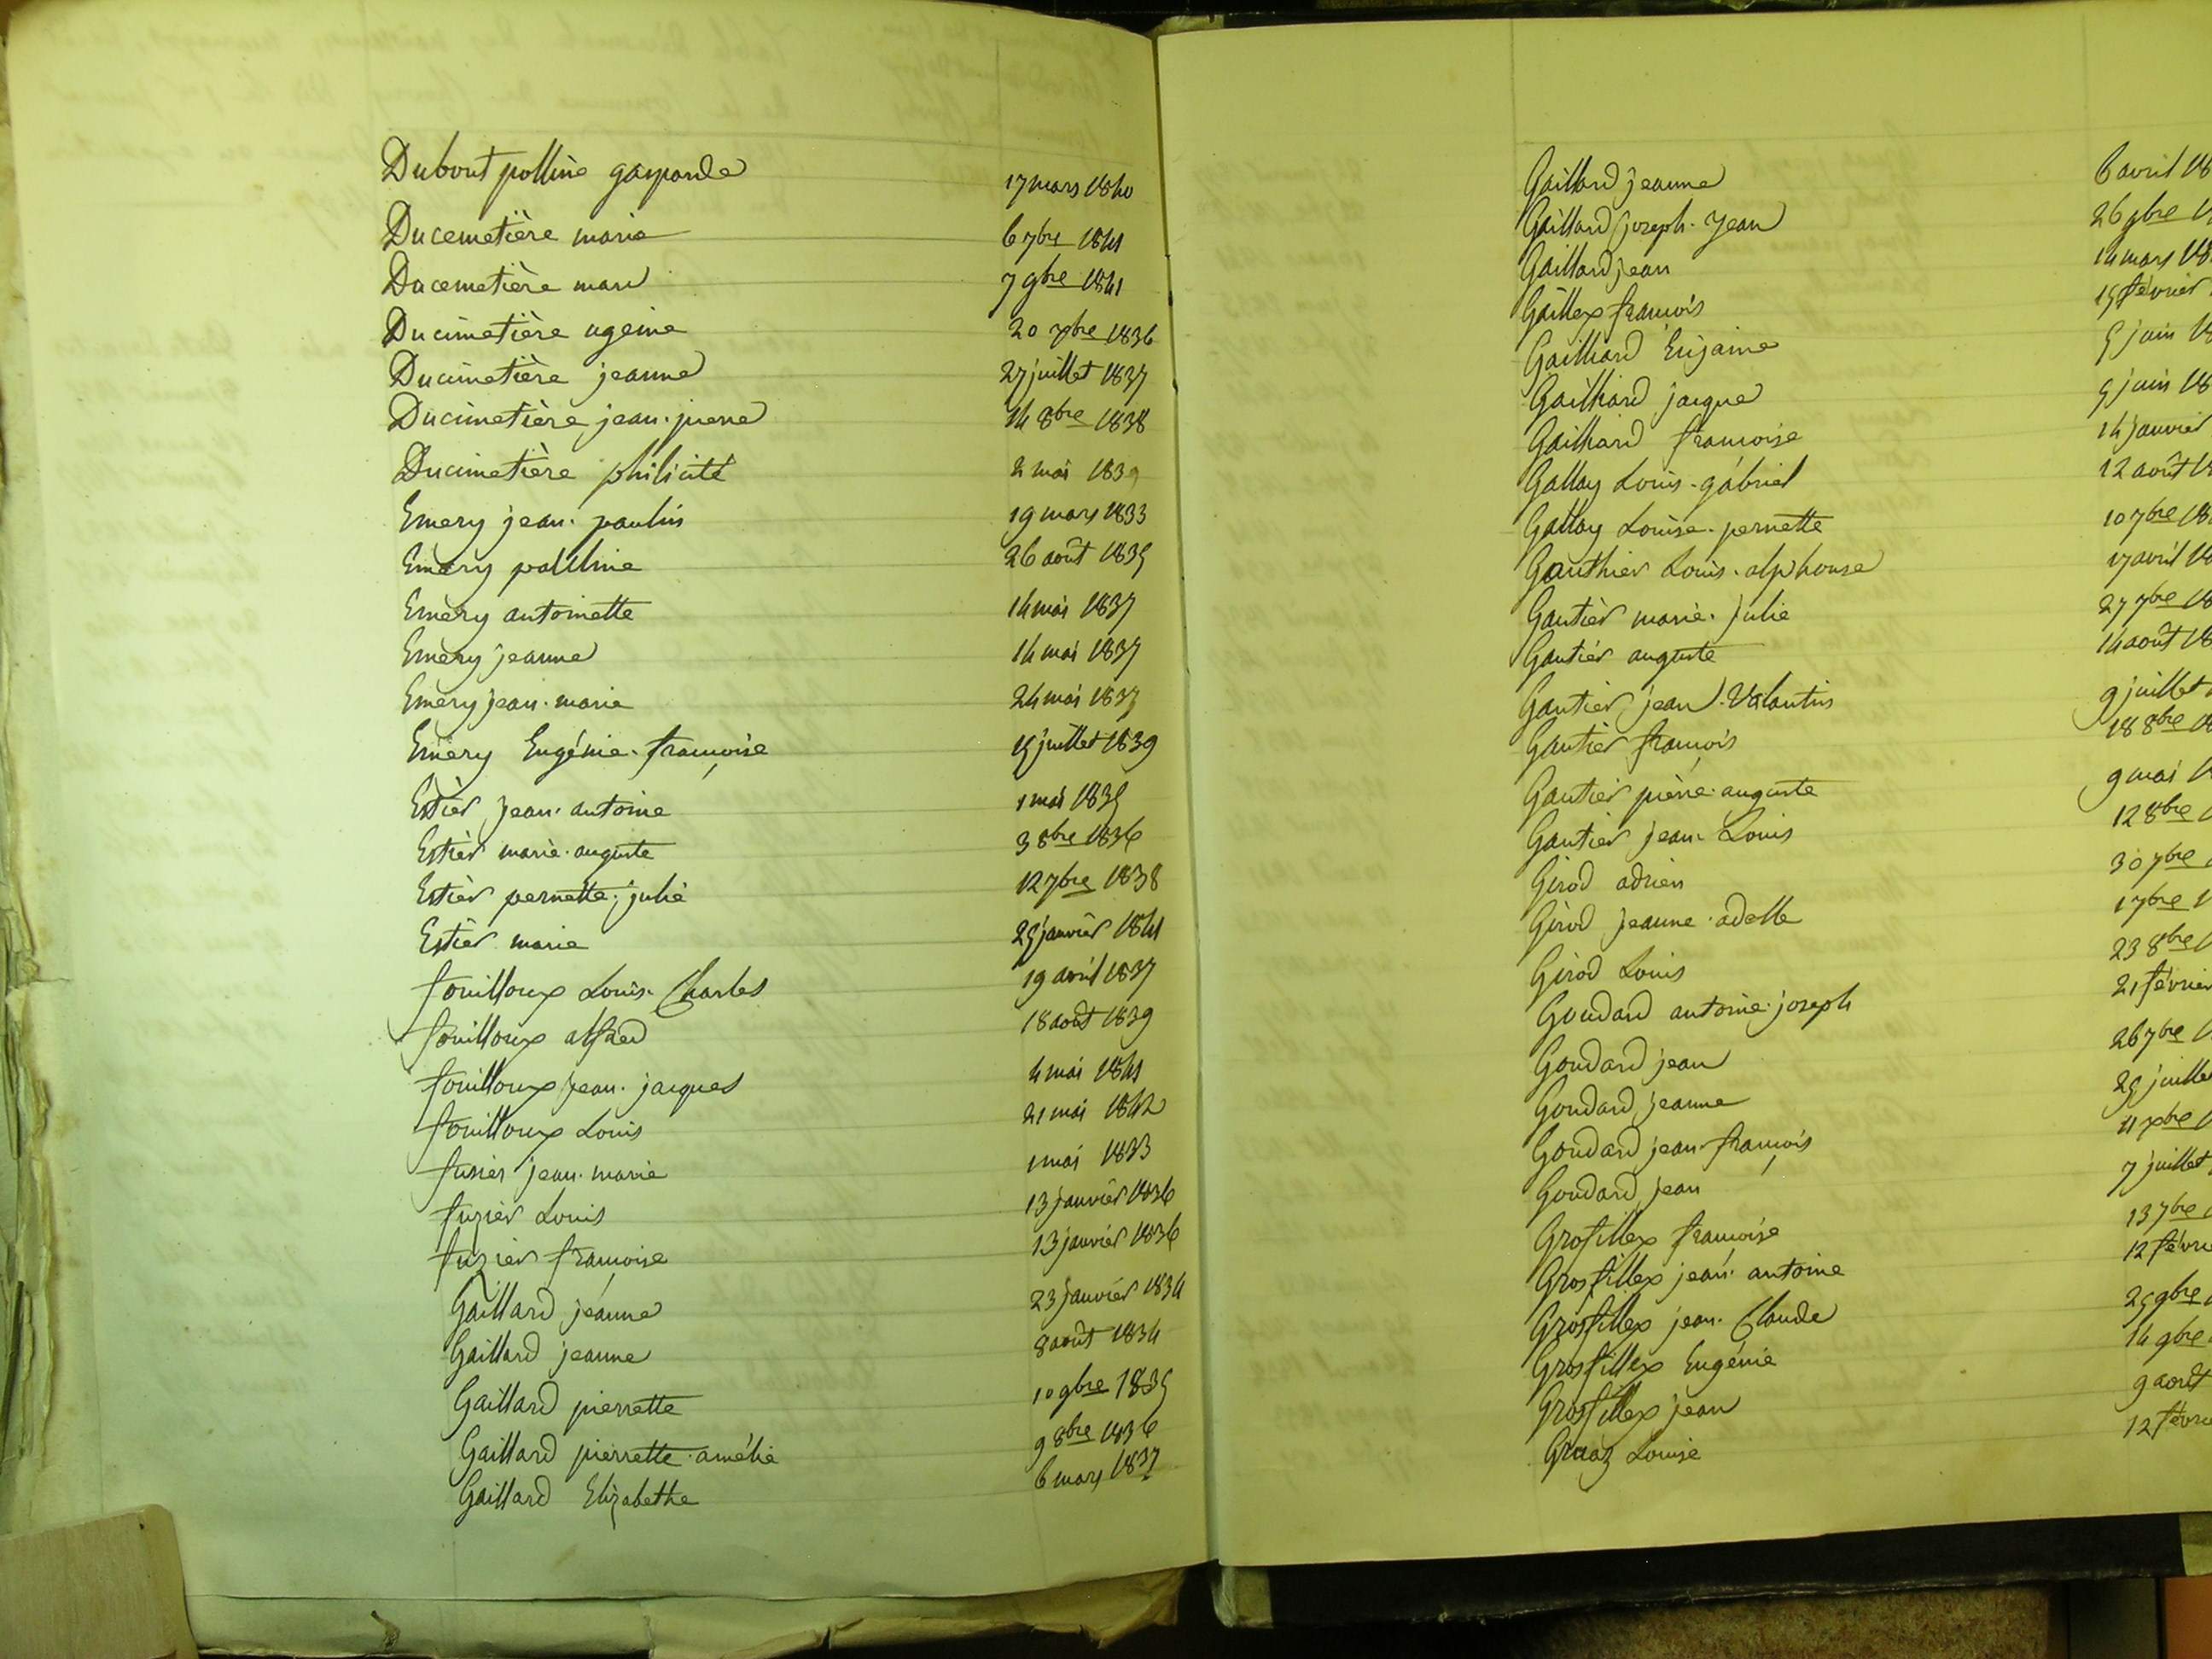 Dubout polline gasparde 17 mars 1840
Ducemetière marie 6 7bre 1841
Ducemetière mari 7 9bre 1841
Ducimetière ugeine 20 7bre 1836
Ducimetière jeanne 27 juillet 1837
Ducimetière jean-pierre 14 8bre 1838
Ducimetière philicité 2 mai 1839
Emery jean-paulin 19 mars 1833
Emery pauline 26 août 1835
Emery antoinette 14 mai 1837
Emery jeanne 14 mai 1837
Emery jean-marie 24 mai 1837
Emery Eugénie-françoise 15 juillet 1839
Estier jean-antoine 1 mai 1835
Estier marie-auguste 3 8bre 1836
Estier pernette-julie 12 7bre 1838
Estier marie 25 janvier 1841
fouilloux Louis-Charles 19 avril 1837
fouilloux alfred 18 août 1839
fouilloux jean-jacques 4 mai 1841
fouilloux Louis 21 mai 1842
fusier jean-marie 1 mai 1833
fuzier Louis 13 janvier 1836
fuzier françoise 13 janvier 1836
Gaillard jeanne 23 janvier 1834
Gaillard jeanne 8 août 1834
Gaillard pierrette 10 9bre 1835
Gaillard pierrette-amélie 9 8bre 1836
Gaillard Elizabethe 6 mars 1837
Gaillard jeanne 6 avril 18
Gaillard joseph-Jean 26 9bre 1
Gaillard jean 14 mars 18
Gaillex françois 15 février
Gailliard Eujaine 5 juin 18
Gailliard jacque 5 juin 18
Gailliard françoise 14 janvier
Gallay Louis-gabriel 12 août 18
Gallay Louise-pernette 10 7bre 18
Gauthier Louis-alphonse 17 avril 18
Gautier marie-julie 27 7bre 18
Gautier auguste 14 août 18
Gautier jean-Valantin 9 juillet
Gautier françois 18 8bre 18
Gautier pierre-auguste 9 mai 1
Gautier jean-Louis 12 8bre
Girod adrien 30 7bre
Girod jeanne-adelle 1 7bre 1
Girod Louis 23 8bre 1
Goudard antoine-joseph 21 février
Goudard jean 26 7bre 1
Goudard jeanne 25 juille
Goudard jean-françois 11 xbre 1
Goudard jean 7 juillet
Grosfillex françoise 13 7bre
Grosfillex jean-antoine 12 févri
Grosfillex jean-Claude 25 9bre
Grosfillex Eugénie 14 9bre
Grosfillex jean 9 août
Graaz Louise 12 févri